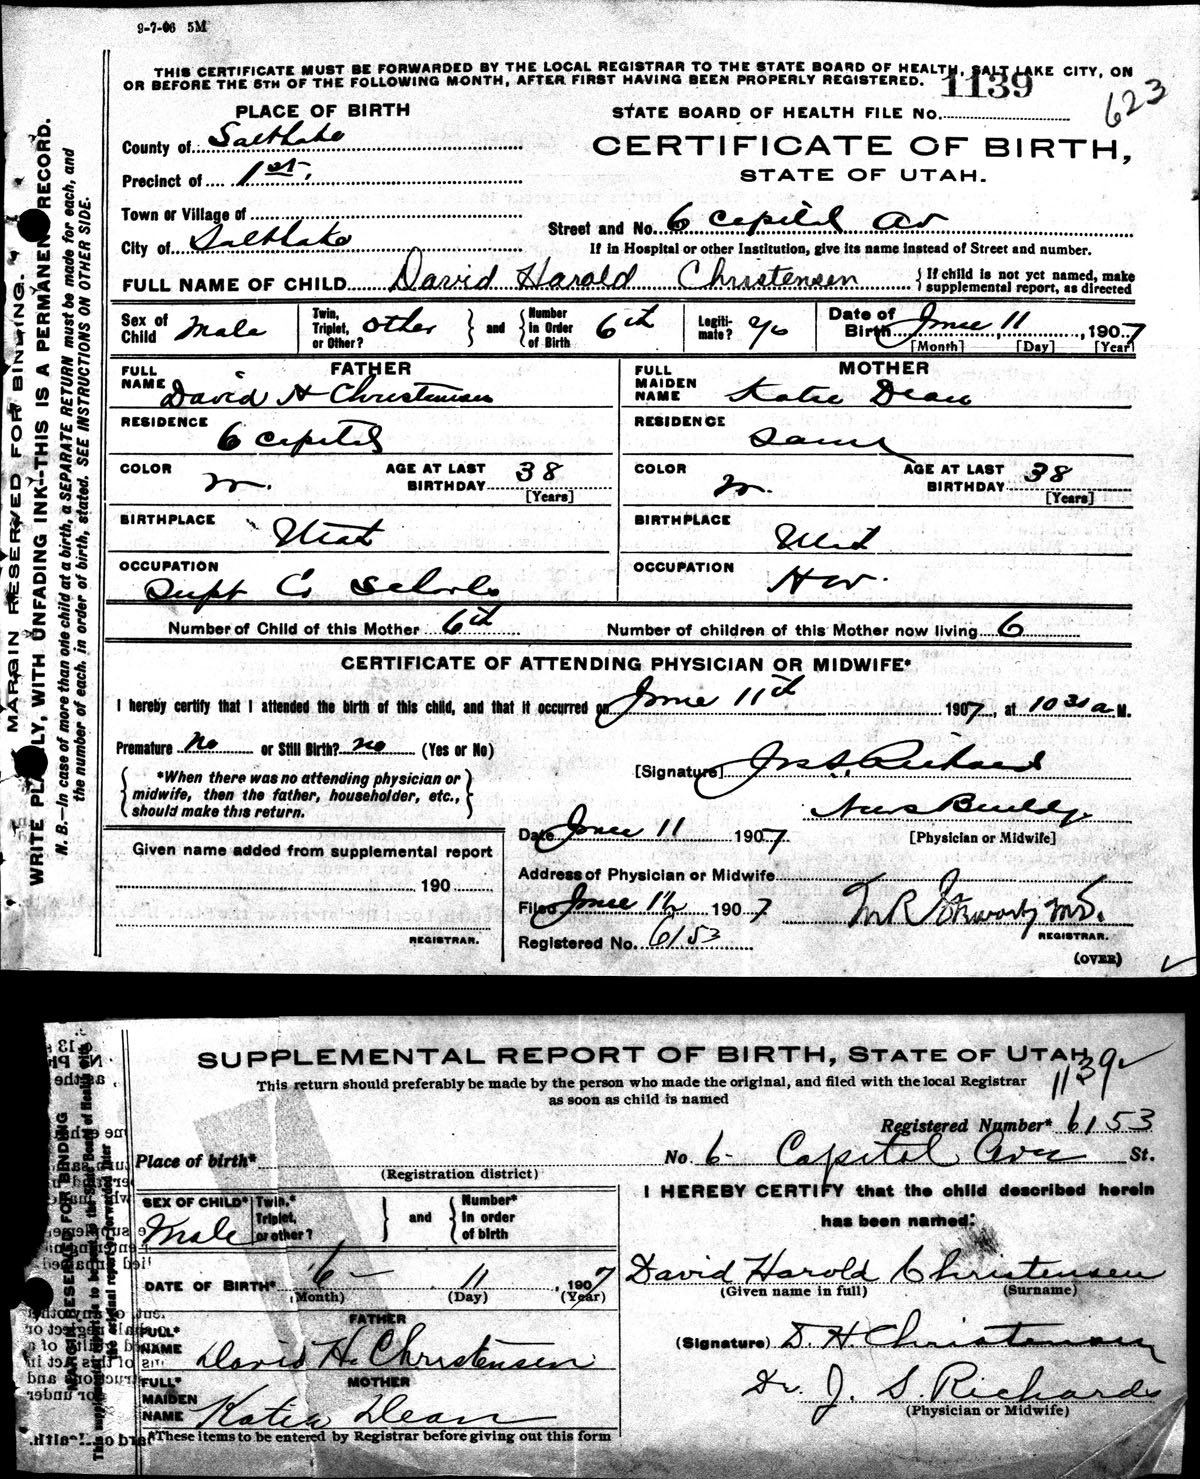 9-7-06 5M
THIS CERTIFICATE MUST BE FORWARDED BY THE LOCAL REGISTRAR TO THE STATE BOARD OF HEALTH, SALT LAKE CITY, ON
OR BEFORE THE 5TH OF THE FOLLOWING MONTH, AFTER FIRST HAVING BEEN PROPERLY REGISTERED.
1139
623
PLACE OF BIRTH
STATE BOARD OF HEALTH FILE No.
County of Salt Lake
CERTIFICATE OF BIRTH,
Precinct of 1st.
STATE OF UTAH.
Town or Village of
Street and No. 6 Capitol Av
City of Salt Lake
If in Hospital or other Institution, give its name instead of Street and number.
FULL NAME OF CHILD David Harold Christensen
{If child is not yet named, make
supplemental report, as directed
Sex of Child Male
Twin, Triplet, or Other? other
and
Number in Order of Birth 6th
Legitimate? yo
Date of Birth June 11, 1907
[Month] [Day] [Year]
FATHER
FULL NAME David H Christensen
RESIDENCE 6 Capitol
COLOR W.
AGE AT LAST BIRTHDAY 38
[Years]
BIRTHPLACE Utah
OCCUPATION Supt C Schools
MOTHER
FULL MAIDEN NAME Katie Dean
RESIDENCE Same
COLOR W.
AGE AT LAST BIRTHDAY 38
[Years]
BIRTHPLACE Utah
OCCUPATION H W.
Number of Child of this Mother 6th
Number of children of this Mother now living 6
CERTIFICATE OF ATTENDING PHYSICIAN OR MIDWIFE*
I hereby certify that I attended the birth of this child, and that it occurred on June 11th 1907, at 10 30 a M.
Premature no or Still Birth? no (Yes or No)
*When there was no attending physician or
midwife, then the father, householder, etc.,
should make this return.
[Signature] Jos S. Richards
News Buildg.
[Physician or Midwife]
Date June 11 1907
Given name added from supplemental report
190
REGISTRAR.
Address of Physician or Midwife
Filed June 12 1907
M.D.
REGISTRAR.
Registered No. 6153
(OVER)
MARGIN RESERVED FOR BINDING.
WRITE PLAINLY, WITH UNFADING INK--THIS IS A PERMANENT RECORD.
N. B.—In case of more than one child at a birth, a SEPARATE RETURN must be made for each, and
the number of each, in order of birth, stated. SEE INSTRUCTIONS ON OTHER SIDE.
SUPPLEMENTAL REPORT OF BIRTH, STATE OF UTAH
1139
This return should preferably be made by the person who made the original, and filed with the local Registrar
as soon as child is named
Registered Number* 6153
Place of birth*
(Registration district)
No. 6- Capitol Ave St.
SEX OF CHILD* Male
Twin,* Triplet, or other?
and
Number* in order of birth
I HEREBY CERTIFY that the child described herein
has been named:
DATE OF BIRTH* 6- 11 1907
(Month) (Day) (Year)
David Harold Christensen
(Given name in full) (Surname)
FATHER
FULL* NAME David H. Christensen
(Signature) D. H. Christensen
MOTHER
FULL* MAIDEN NAME Katie Dean
Dr. J. S. Richards
(Physician or Midwife)
*These items to be entered by Registrar before giving out this form
MARGIN RESERVED FOR BINDING